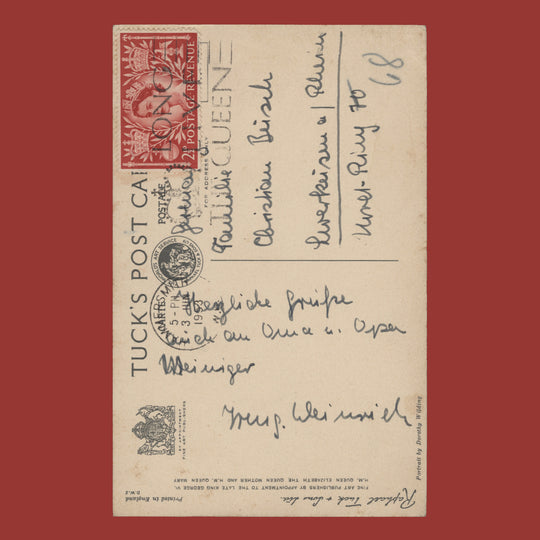 TUCK'S POST CARD
POSTAGE REVENUE
LONG
THE QUEEN
5-PM
3 JUN
1953
FOR ADDRESS ONLY
Familie
Christian Büsch
Leverkusen a/Rhein
Ring 70
68
Herzliche Grüße
auch an Oma u. Opa
Weiniger
Weinrich
BY APPOINTMENT
FINE ART PUBLISHERS
Portrait by Dorothy Wilding
Raphael Tuck & Sons Ltd.
FINE ART PUBLISHERS BY APPOINTMENT TO THE LATE KING GEORGE VI,
H.M. QUEEN ELIZABETH THE QUEEN MOTHER AND H.M. QUEEN MARY
Printed in England